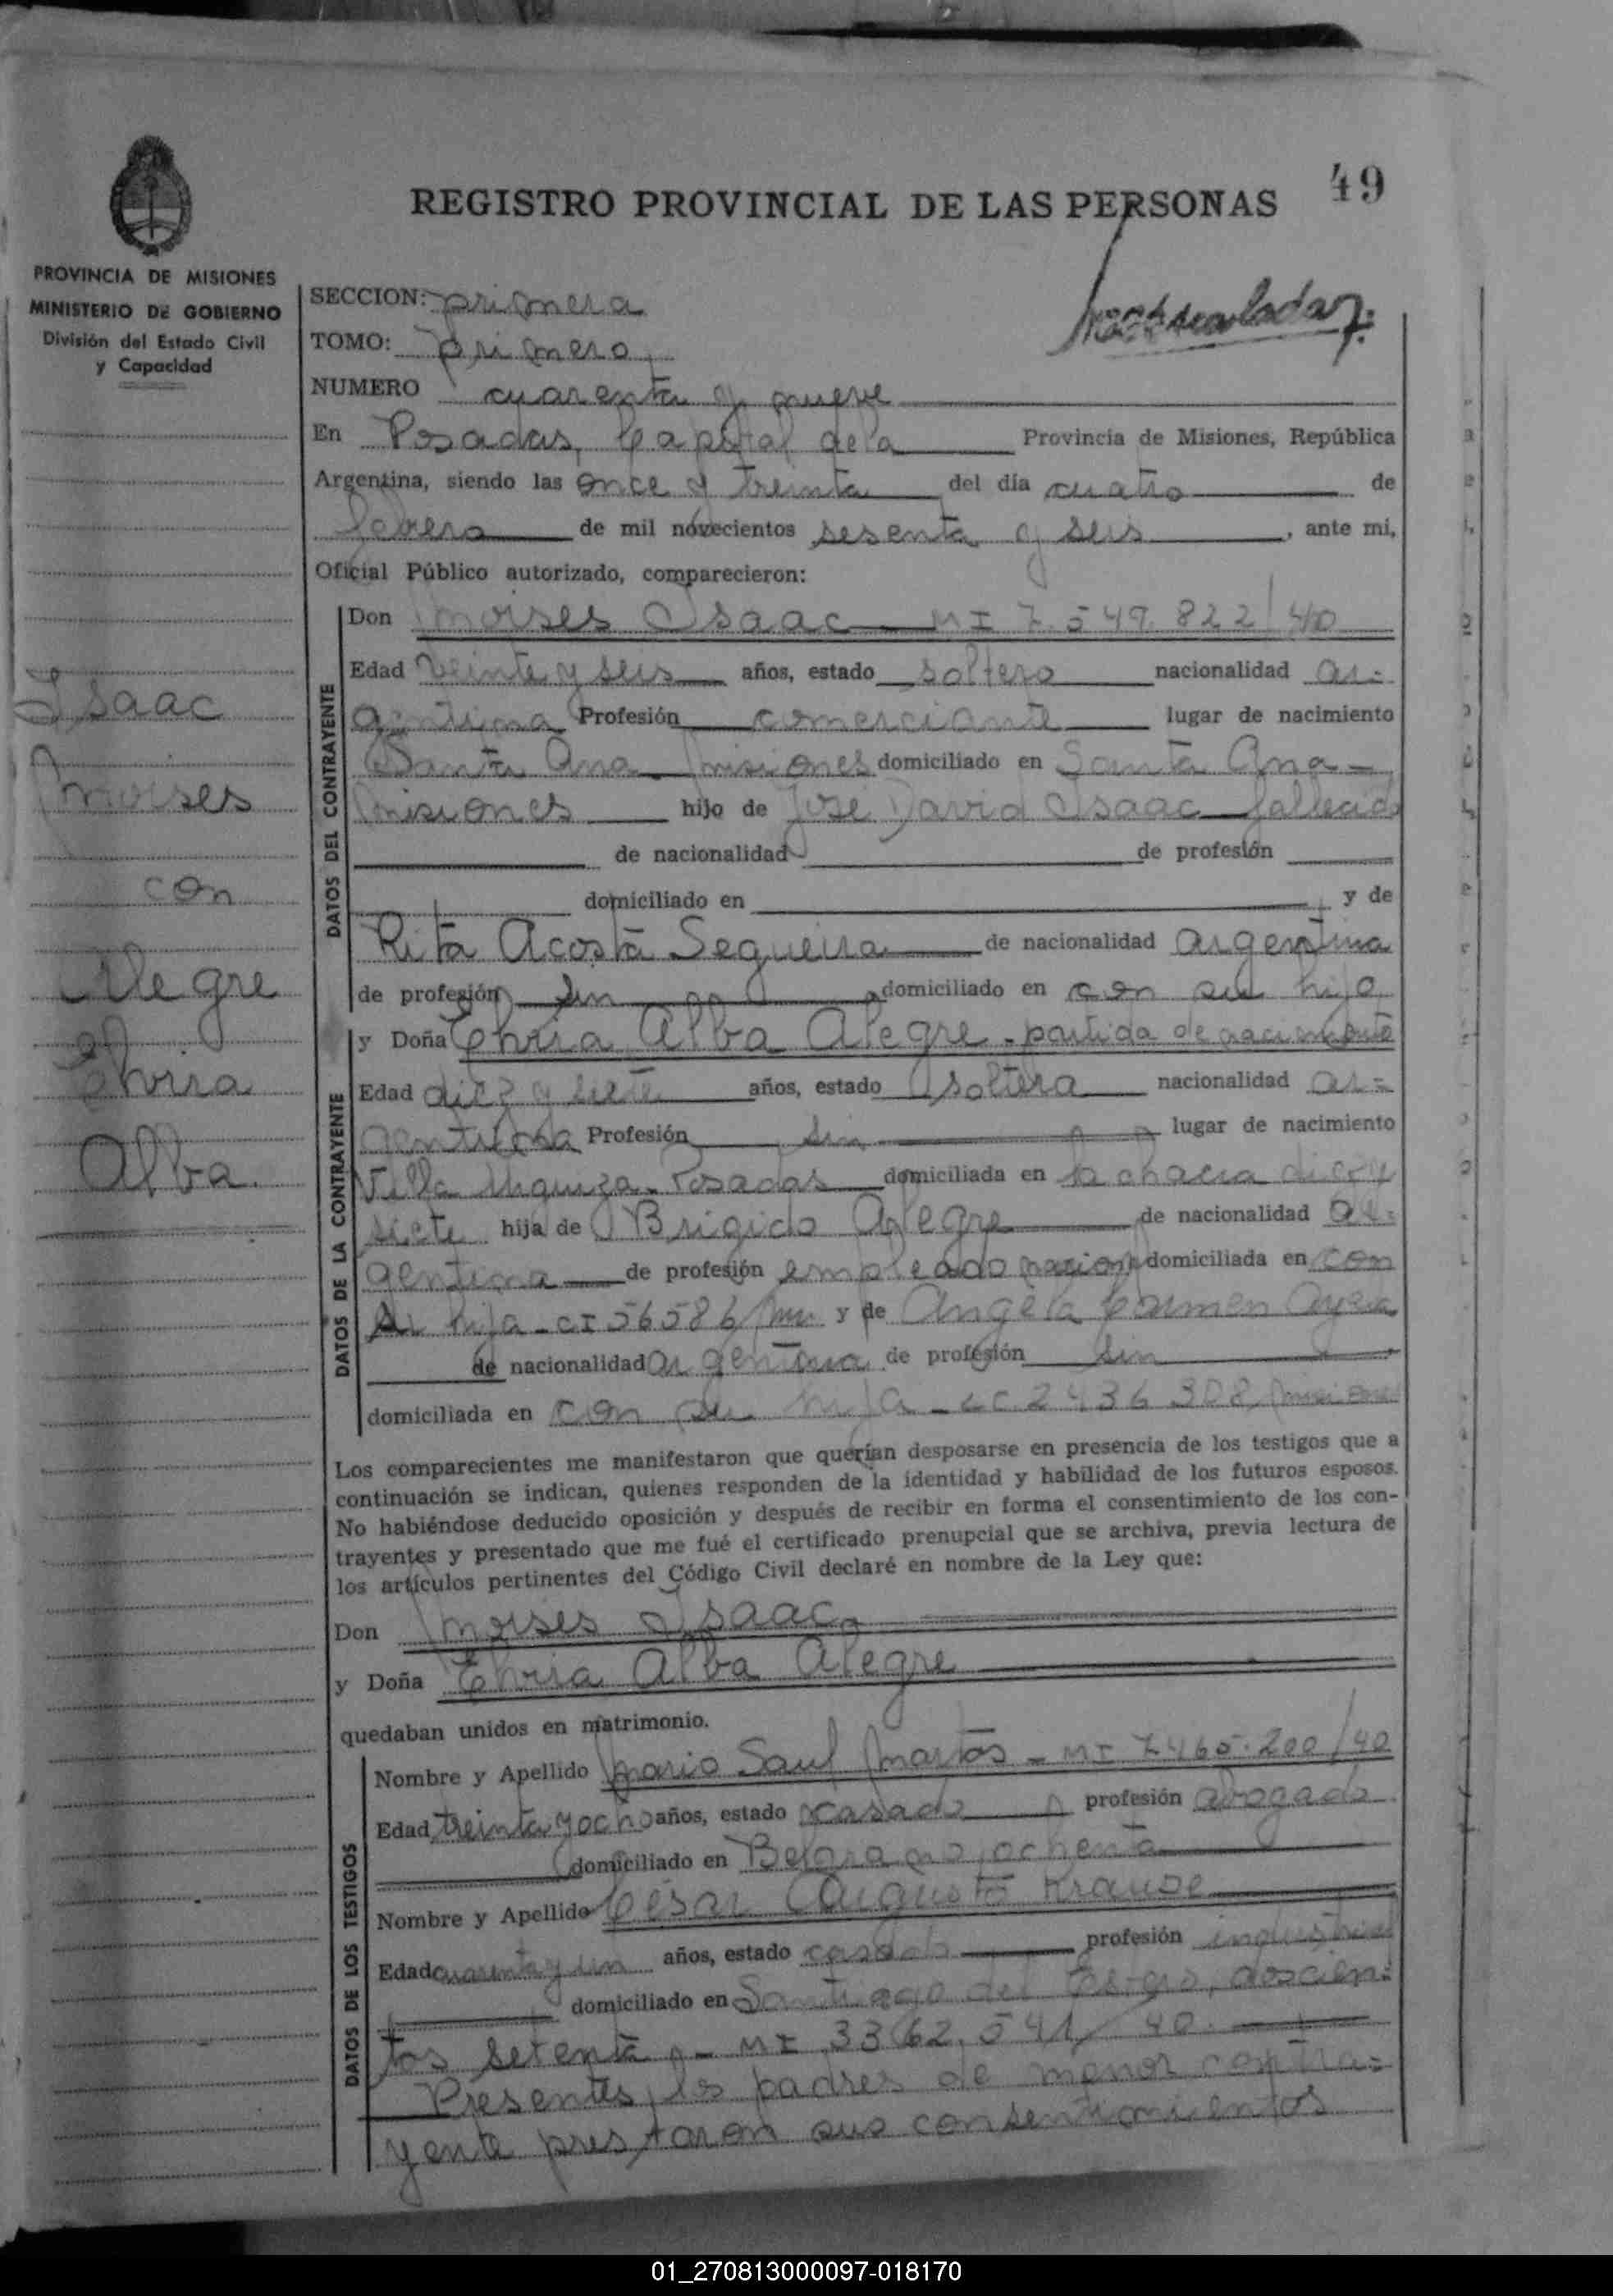 49
REGISTRO PROVINCIAL DE LAS PERSONAS
PROVINCIA DE MISIONES
MINISTERIO DE GOBIERNO
División del Estado Civil
y Capacidad
Isaac
Moises
con
Alegre
Alba
SECCION: primera
TOMO: primero
NUMERO cuarenta y nueve
En Posadas, Capital de la Provincia de Misiones, República
Argentina, siendo las once y treinta del día cuatro de
febrero de mil novecientos sesenta y seis, ante mi,
Oficial Público autorizado, comparecieron:
DATOS DEL CONTRAYENTE
Don Moises Isaac MI 7.549.822/40
Edad veinte y seis años, estado soltero nacionalidad ar=
gentina Profesión comerciante lugar de nacimiento
Santa Ana Misiones domiciliado en Santa Ana -
Misiones hijo de José David Isaac fallecido
de nacionalidad de profesión
domiciliado en y de
Rita Acosta Segueira de nacionalidad argentina
de profesión sin domiciliado en con su hijo
DATOS DE LA CONTRAYENTE
y Doña Alba Alegre - partida de nacimiento
Edad diez y siete años, estado soltera nacionalidad ar=
gentina Profesión sin lugar de nacimiento
Villa Urquiza - Posadas domiciliada en la chacra diez y
siete hija de Brigido Alegre de nacionalidad ar=
gentina de profesión empleado domiciliada en con
su hija - CI 56586 y de Angela Carmen
de nacionalidad argentina de profesión sin
domiciliada en con su hija - LC 2436308 Misiones
Los comparecientes me manifestaron que querían desposarse en presencia de los testigos que a
continuación se indican, quienes responden de la identidad y habilidad de los futuros esposos.
No habiéndose deducido oposición y después de recibir en forma el consentimiento de los con-
trayentes y presentado que me fué el certificado prenupcial que se archiva, previa lectura de
los artículos pertinentes del Código Civil declaré en nombre de la Ley que:
Don Moises Isaac
y Doña Alba Alegre
quedaban unidos en matrimonio.
DATOS DE LOS TESTIGOS
Nombre y Apellido Mario Saul Martos - MI 7465.200/40
Edad treinta y ocho años, estado casado profesión abogado
domiciliado en Belgrano ochenta
Nombre y Apellido César Augusto Krause
Edad cuarenta y un años, estado casado profesión industrial
domiciliado en Santiago del Estero, doscien=
tos setenta - MI 3362.541/40.
Presentes los padres de menor contra=
yente prestaron sus consentimientos
01_270813000097-018170